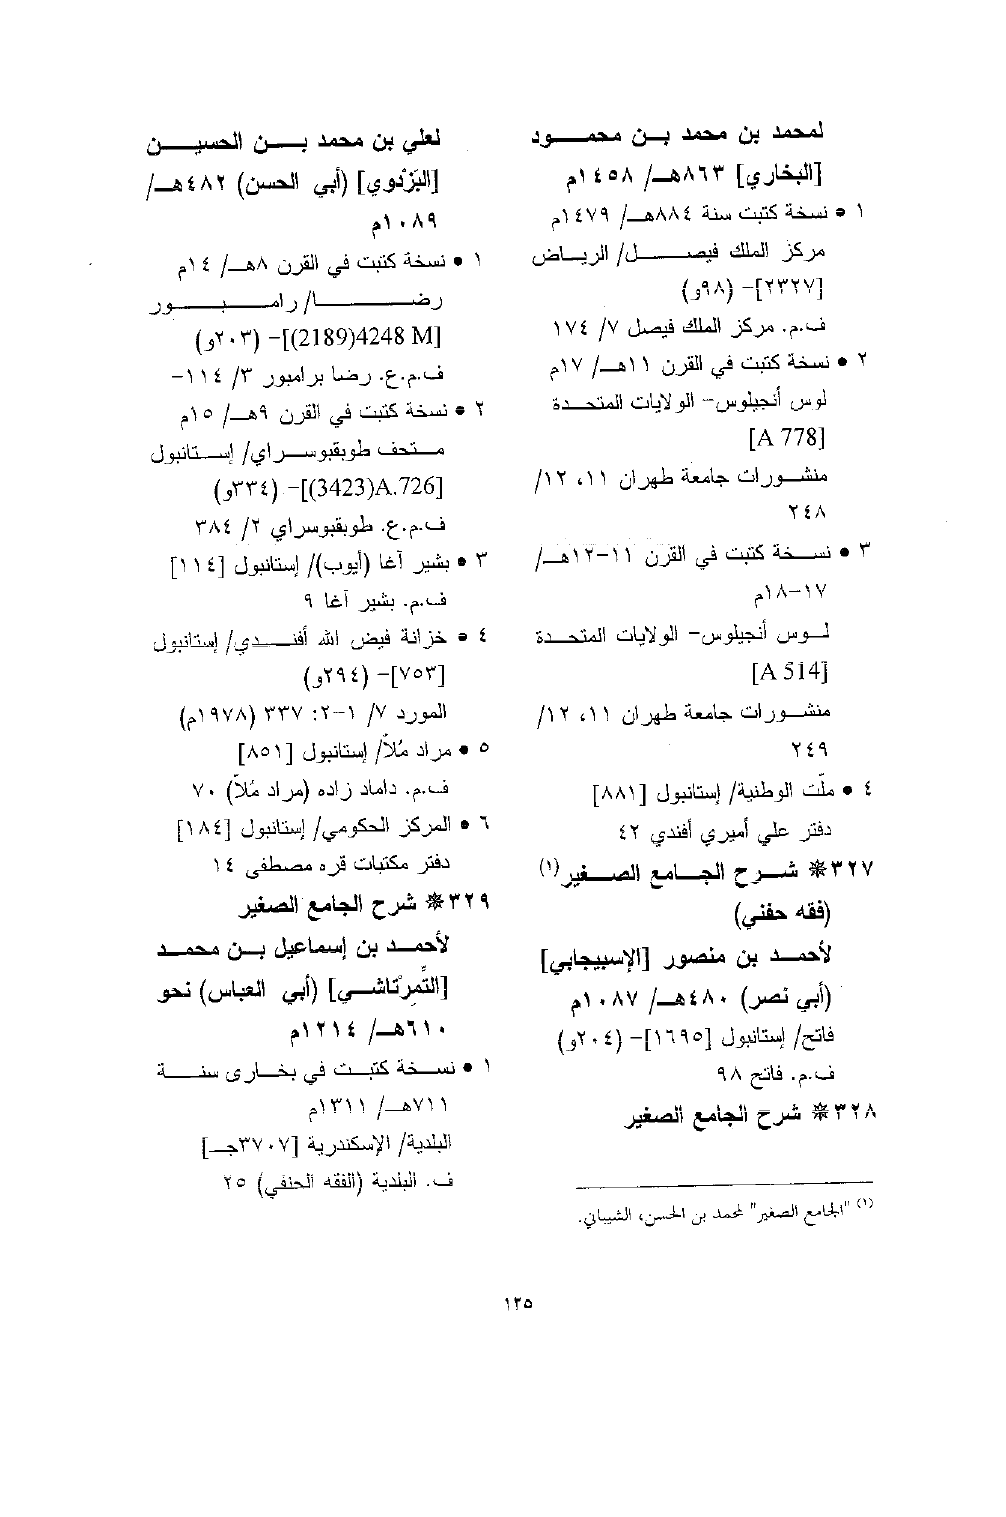 لمحمد بن محمد بن محمود
[البخاري] ٨٦٣هـ/ ١٤٥٨م
١ • نسخة كتبت سنة ٨٨٤هـ/ ١٤٧٩م
مركز الملك فيصل/ الرياض
[٢٣٢٧]- (٩٨و)
ف.م. مركز الملك فيصل ٧/ ١٧٤
٢ • نسخة كتبت في القرن ١١هـ/ ١٧م
لوس أنجيلوس- الولايات المتحدة
[A 778]
منشورات جامعة طهران ١١، ١٢/
٢٤٨
٣ • نسخة كتبت في القرن ١١-١٢هـ/
١٧-١٨م
لوس أنجيلوس- الولايات المتحدة
[A 514]
منشورات جامعة طهران ١١، ١٢/
٢٤٩
٤ • ملّت الوطنية/ إستانبول [٨٨١]
دفتر علي أميري أفندي ٤٢
٣٢٧* شرح الجامع الصغير(١)
(فقه حفني)
لأحمد بن منصور [الإسبيجابي]
(أبي نصر) ٤٨٠هـ/ ١٠٨٧م
فاتح/ إستانبول [١٦٩٥]- (٢٠٤و)
ف.م. فاتح ٩٨
٣٢٨* شرح الجامع الصغير
(١) "الجامع الصغير" لمحمد بن الحسن، الشيباني.
لعلي بن محمد بن الحسين
[البَزْدوي] (أبي الحسن) ٤٨٢هـ/
١٠٨٩م
١ • نسخة كتبت في القرن ٨هـ/ ١٤م
رضا/ رامبور
[4248 M(2189)]- (٢٠٣و)
ف.م.ع. رضا برامبور ٣/ ١١٤-
٢ • نسخة كتبت في القرن ٩هـ/ ١٥م
متحف طوبقبوسراي/ إستانبول
[A.726(3423)]- (٣٣٤و)
ف.م.ع. طوبقبوسراي ٢/ ٣٨٤
٣ • بشير آغا (أيوب)/ إستانبول [١١٤]
ف.م. بشير آغا ٩
٤ • خزانة فيض الله أفندي/ إستانبول
[٧٥٣]- (٢٩٤و)
المورد ٧/ ١-٢: ٣٣٧ (١٩٧٨م)
٥ • مراد مُلاّ/ إستانبول [٨٥١]
ف.م. داماد زاده (مراد مُلاّ) ٧٠
٦ • المركز الحكومي/ إستانبول [١٨٤]
دفتر مكتبات قره مصطفى ١٤
٣٢٩* شرح الجامع الصغير
لأحمد بن إسماعيل بن محمد
[التِّمرْتاشي] (أبي العباس) نحو
٦١٠هـ/ ١٢١٤م
١ • نسخة كتبت في بخارى سنة
٧١١هـ/ ١٣١١م
البلدية/ الإسكندرية [٣٧٠٧جـ]
ف. البلدية (الفقه الحنفي) ٢٥
١٢٥